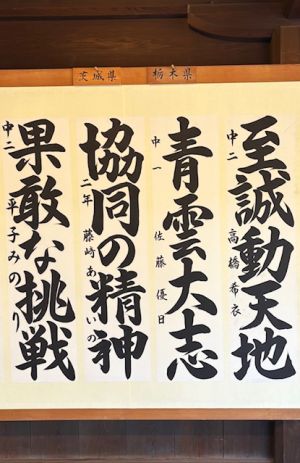 栃木県
茨城県
至誠動天地
中二 高橋希衣
青雲大志
中一 佐藤優日
協同の精神
二年 藤崎あいの
果敢な挑戦
中二 平子みのり